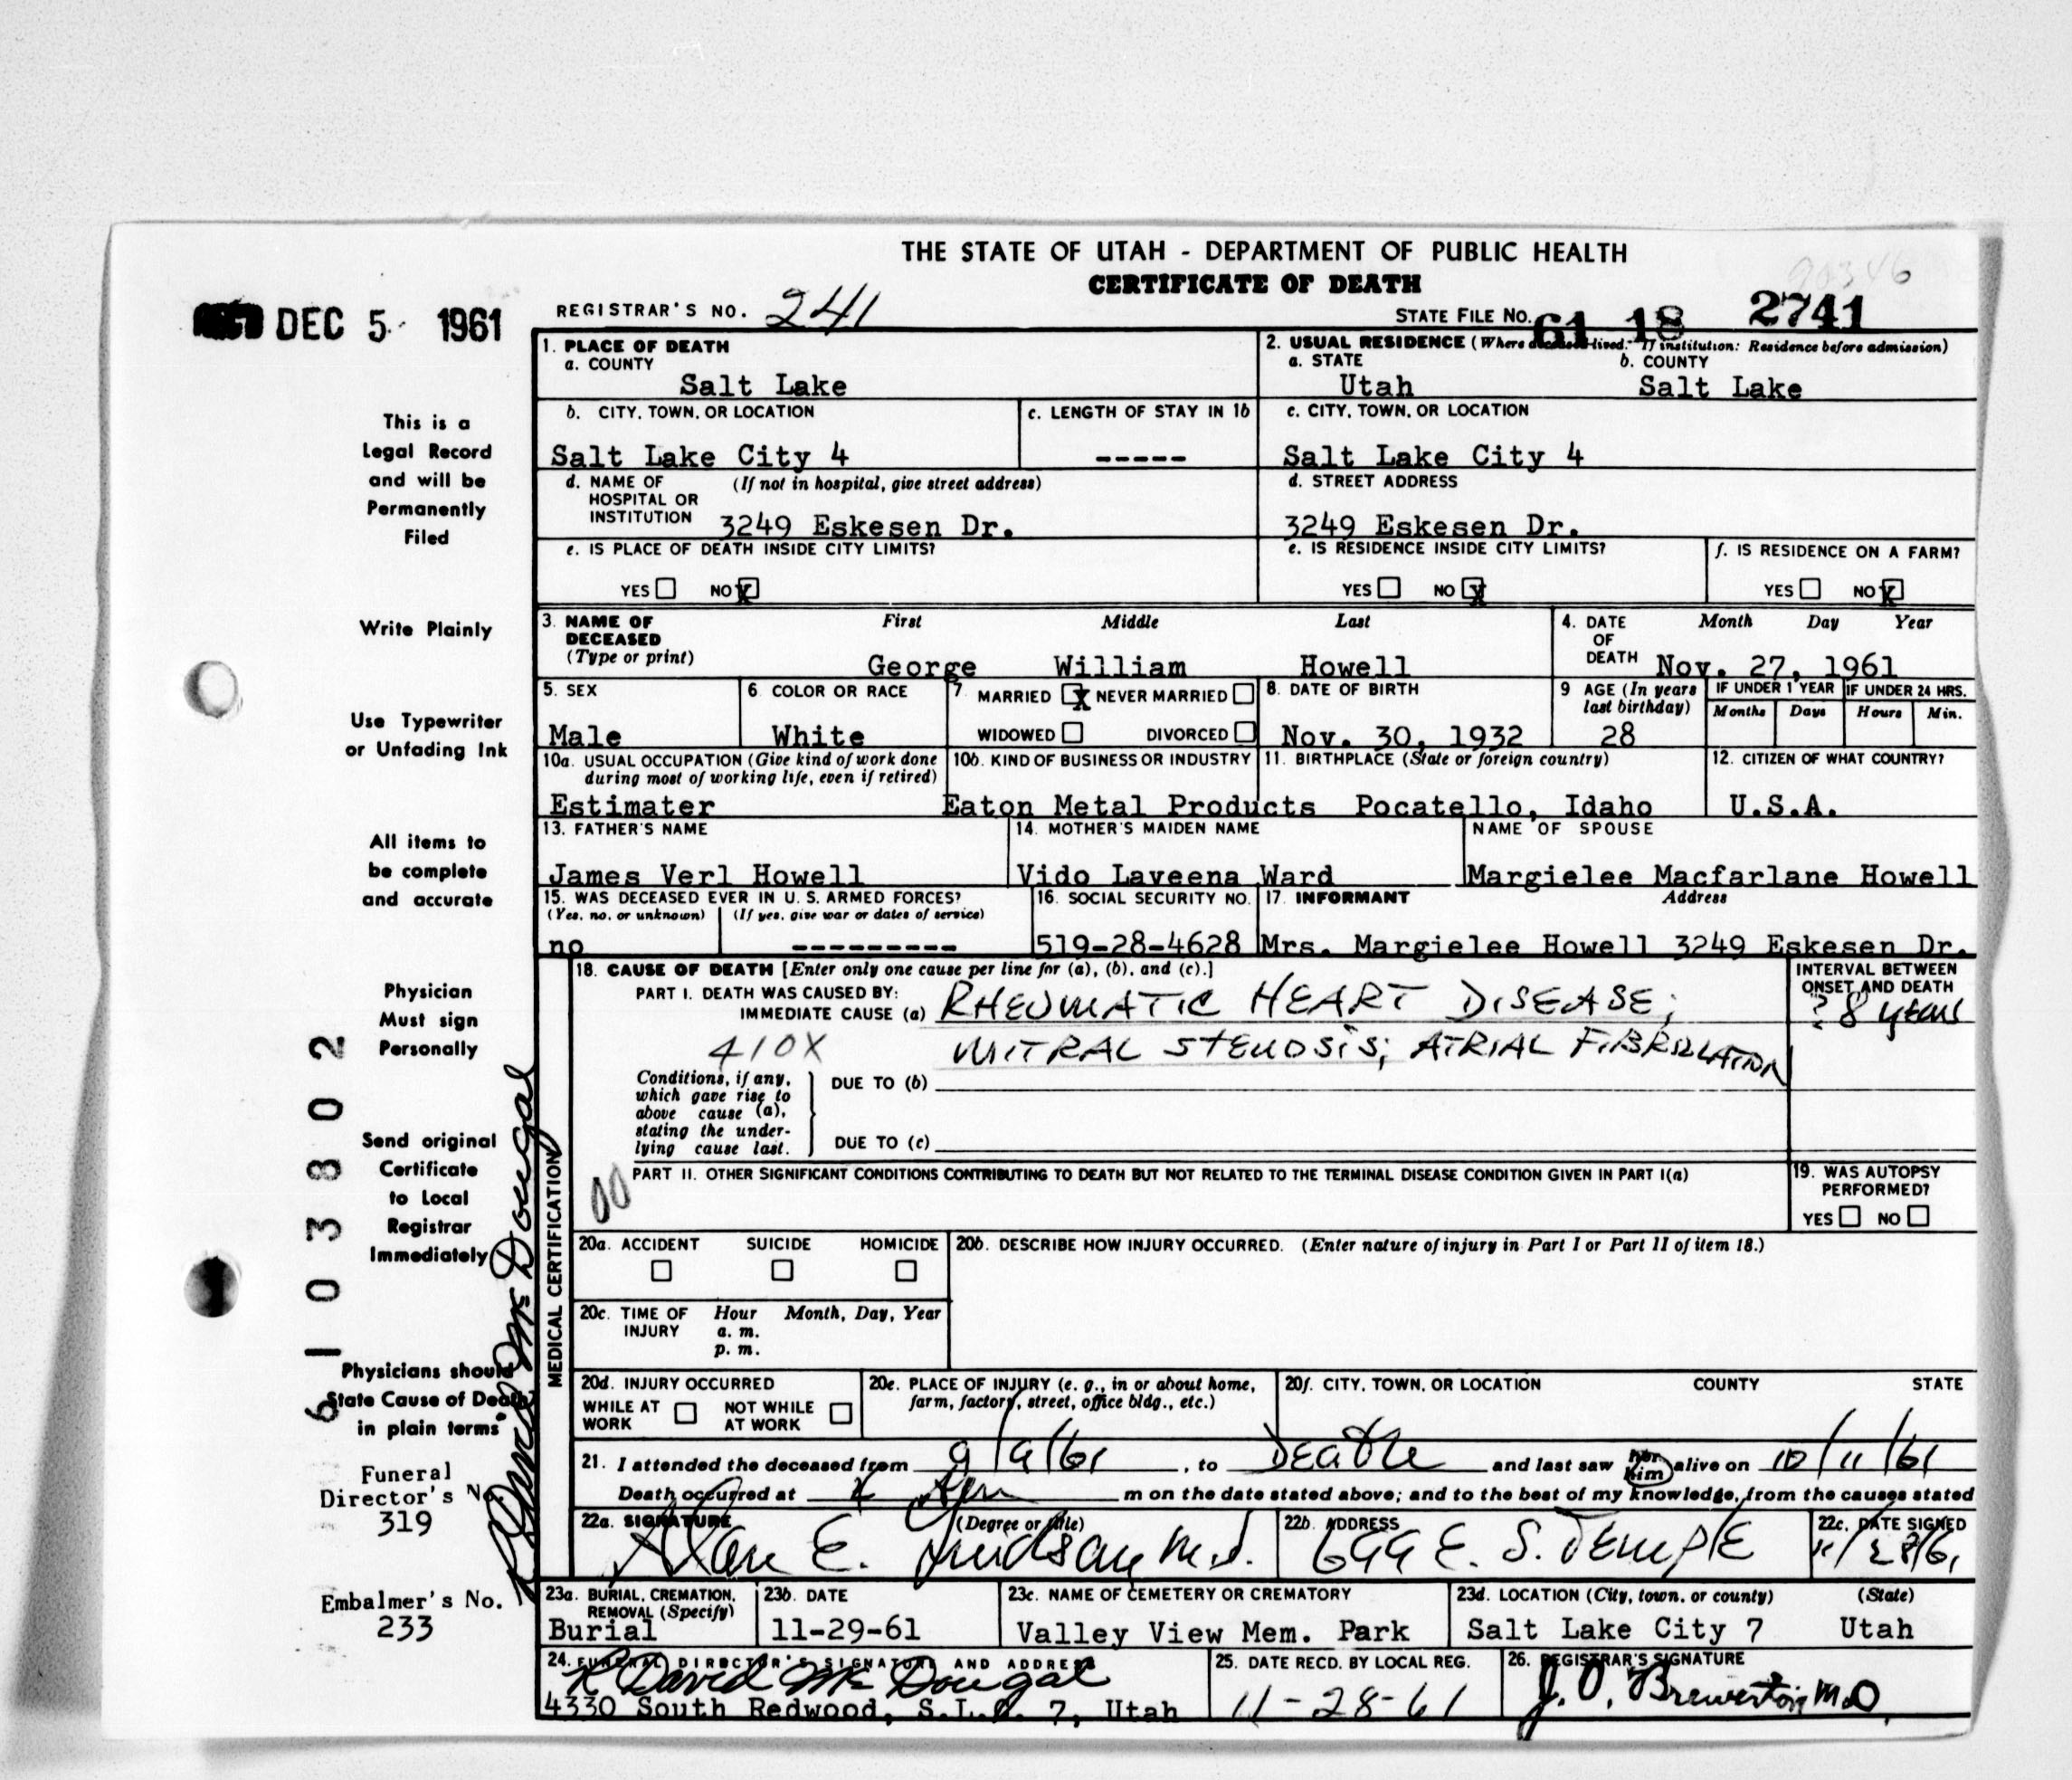 THE STATE OF UTAH - DEPARTMENT OF PUBLIC HEALTH
CERTIFICATE OF DEATH
DEC 5 1961
REGISTRAR'S NO. 241
STATE FILE NO. 61 18 2741
This is a
Legal Record
and will be
Permanently
Filed
Write Plainly
Use Typewriter
or Unfading Ink
All items to
be complete
and accurate
Physician
Must sign
Personally
Send original
Certificate
to Local
Registrar
Immediately
Physicians should
State Cause of Death
in plain terms
Funeral
Director's No.
319
Embalmer's No.
233
6 1 0 3 8 0 2
R David Mc Dougal
1. PLACE OF DEATH
a. COUNTY
Salt Lake
2. USUAL RESIDENCE (Where deceased lived. If institution: Residence before admission)
a. STATE b. COUNTY
Utah Salt Lake
b. CITY, TOWN, OR LOCATION
Salt Lake City 4
c. LENGTH OF STAY IN 1b
-----
c. CITY, TOWN, OR LOCATION
Salt Lake City 4
d. NAME OF (If not in hospital, give street address)
HOSPITAL OR
INSTITUTION 3249 Eskesen Dr.
d. STREET ADDRESS
3249 Eskesen Dr.
e. IS PLACE OF DEATH INSIDE CITY LIMITS?
YES NO X
e. IS RESIDENCE INSIDE CITY LIMITS?
YES NO X
f. IS RESIDENCE ON A FARM?
YES NO X
3. NAME OF First Middle Last
DECEASED
(Type or print) George William Howell
4. DATE Month Day Year
OF
DEATH Nov. 27, 1961
5. SEX
Male
6. COLOR OR RACE
White
7. MARRIED X NEVER MARRIED
WIDOWED DIVORCED
8. DATE OF BIRTH
Nov. 30, 1932
9 AGE (In years
last birthday)
28
IF UNDER 1 YEAR IF UNDER 24 HRS.
Months Days Hours Min.
10a. USUAL OCCUPATION (Give kind of work done
during most of working life, even if retired)
Estimater
10b. KIND OF BUSINESS OR INDUSTRY
Eaton Metal Products
11. BIRTHPLACE (State or foreign country)
Pocatello, Idaho
12. CITIZEN OF WHAT COUNTRY?
U.S.A.
13. FATHER'S NAME
James Verl Howell
14. MOTHER'S MAIDEN NAME
Vido Laveena Ward
NAME OF SPOUSE
Margielee Macfarlane Howell
15. WAS DECEASED EVER IN U. S. ARMED FORCES?
(Yes, no, or unknown) (If yes, give war or dates of service)
no ---------
16. SOCIAL SECURITY NO.
519-28-4628
17. INFORMANT Address
Mrs. Margielee Howell 3249 Eskesen Dr.
MEDICAL CERTIFICATION
18. CAUSE OF DEATH [Enter only one cause per line for (a), (b), and (c).]
PART I. DEATH WAS CAUSED BY:
IMMEDIATE CAUSE (a) RHEUMATIC HEART DISEASE;
410X MITRAL STENOSIS; ATRIAL FIBRILLATION
INTERVAL BETWEEN
ONSET AND DEATH
? 8 years
Conditions, if any,
which gave rise to
above cause (a),
stating the under-
lying cause last.
DUE TO (b)
DUE TO (c)
PART II. OTHER SIGNIFICANT CONDITIONS CONTRIBUTING TO DEATH BUT NOT RELATED TO THE TERMINAL DISEASE CONDITION GIVEN IN PART I(a)
00
19. WAS AUTOPSY
PERFORMED?
YES NO
20a. ACCIDENT SUICIDE HOMICIDE
20b. DESCRIBE HOW INJURY OCCURRED. (Enter nature of injury in Part I or Part II of item 18.)
20c. TIME OF Hour Month, Day, Year
INJURY a. m.
p. m.
20d. INJURY OCCURRED
WHILE AT NOT WHILE
WORK AT WORK
20e. PLACE OF INJURY (e. g., in or about home,
farm, factory, street, office bldg., etc.)
20f. CITY, TOWN, OR LOCATION COUNTY STATE
21. I attended the deceased from 9/9/61, to Death and last saw her him alive on 10/11/61
Death occurred at m on the date stated above; and to the best of my knowledge, from the causes stated
22a. SIGNATURE (Degree or title)
Alan E. Lindsay M.D.
22b. ADDRESS
699 E. S. Temple
22c. DATE SIGNED
11/28/61
23a. BURIAL, CREMATION,
REMOVAL (Specify)
Burial
23b. DATE
11-29-61
23c. NAME OF CEMETERY OR CREMATORY
Valley View Mem. Park
23d. LOCATION (City, town, or county) (State)
Salt Lake City 7 Utah
24. FUNERAL DIRECTOR'S SIGNATURE AND ADDRESS
R David Mc Dougal
4330 South Redwood, S.L.C. 7, Utah
25. DATE RECD. BY LOCAL REG.
11-28-61
26. REGISTRAR'S SIGNATURE
J. O. Brewerton, M.D.